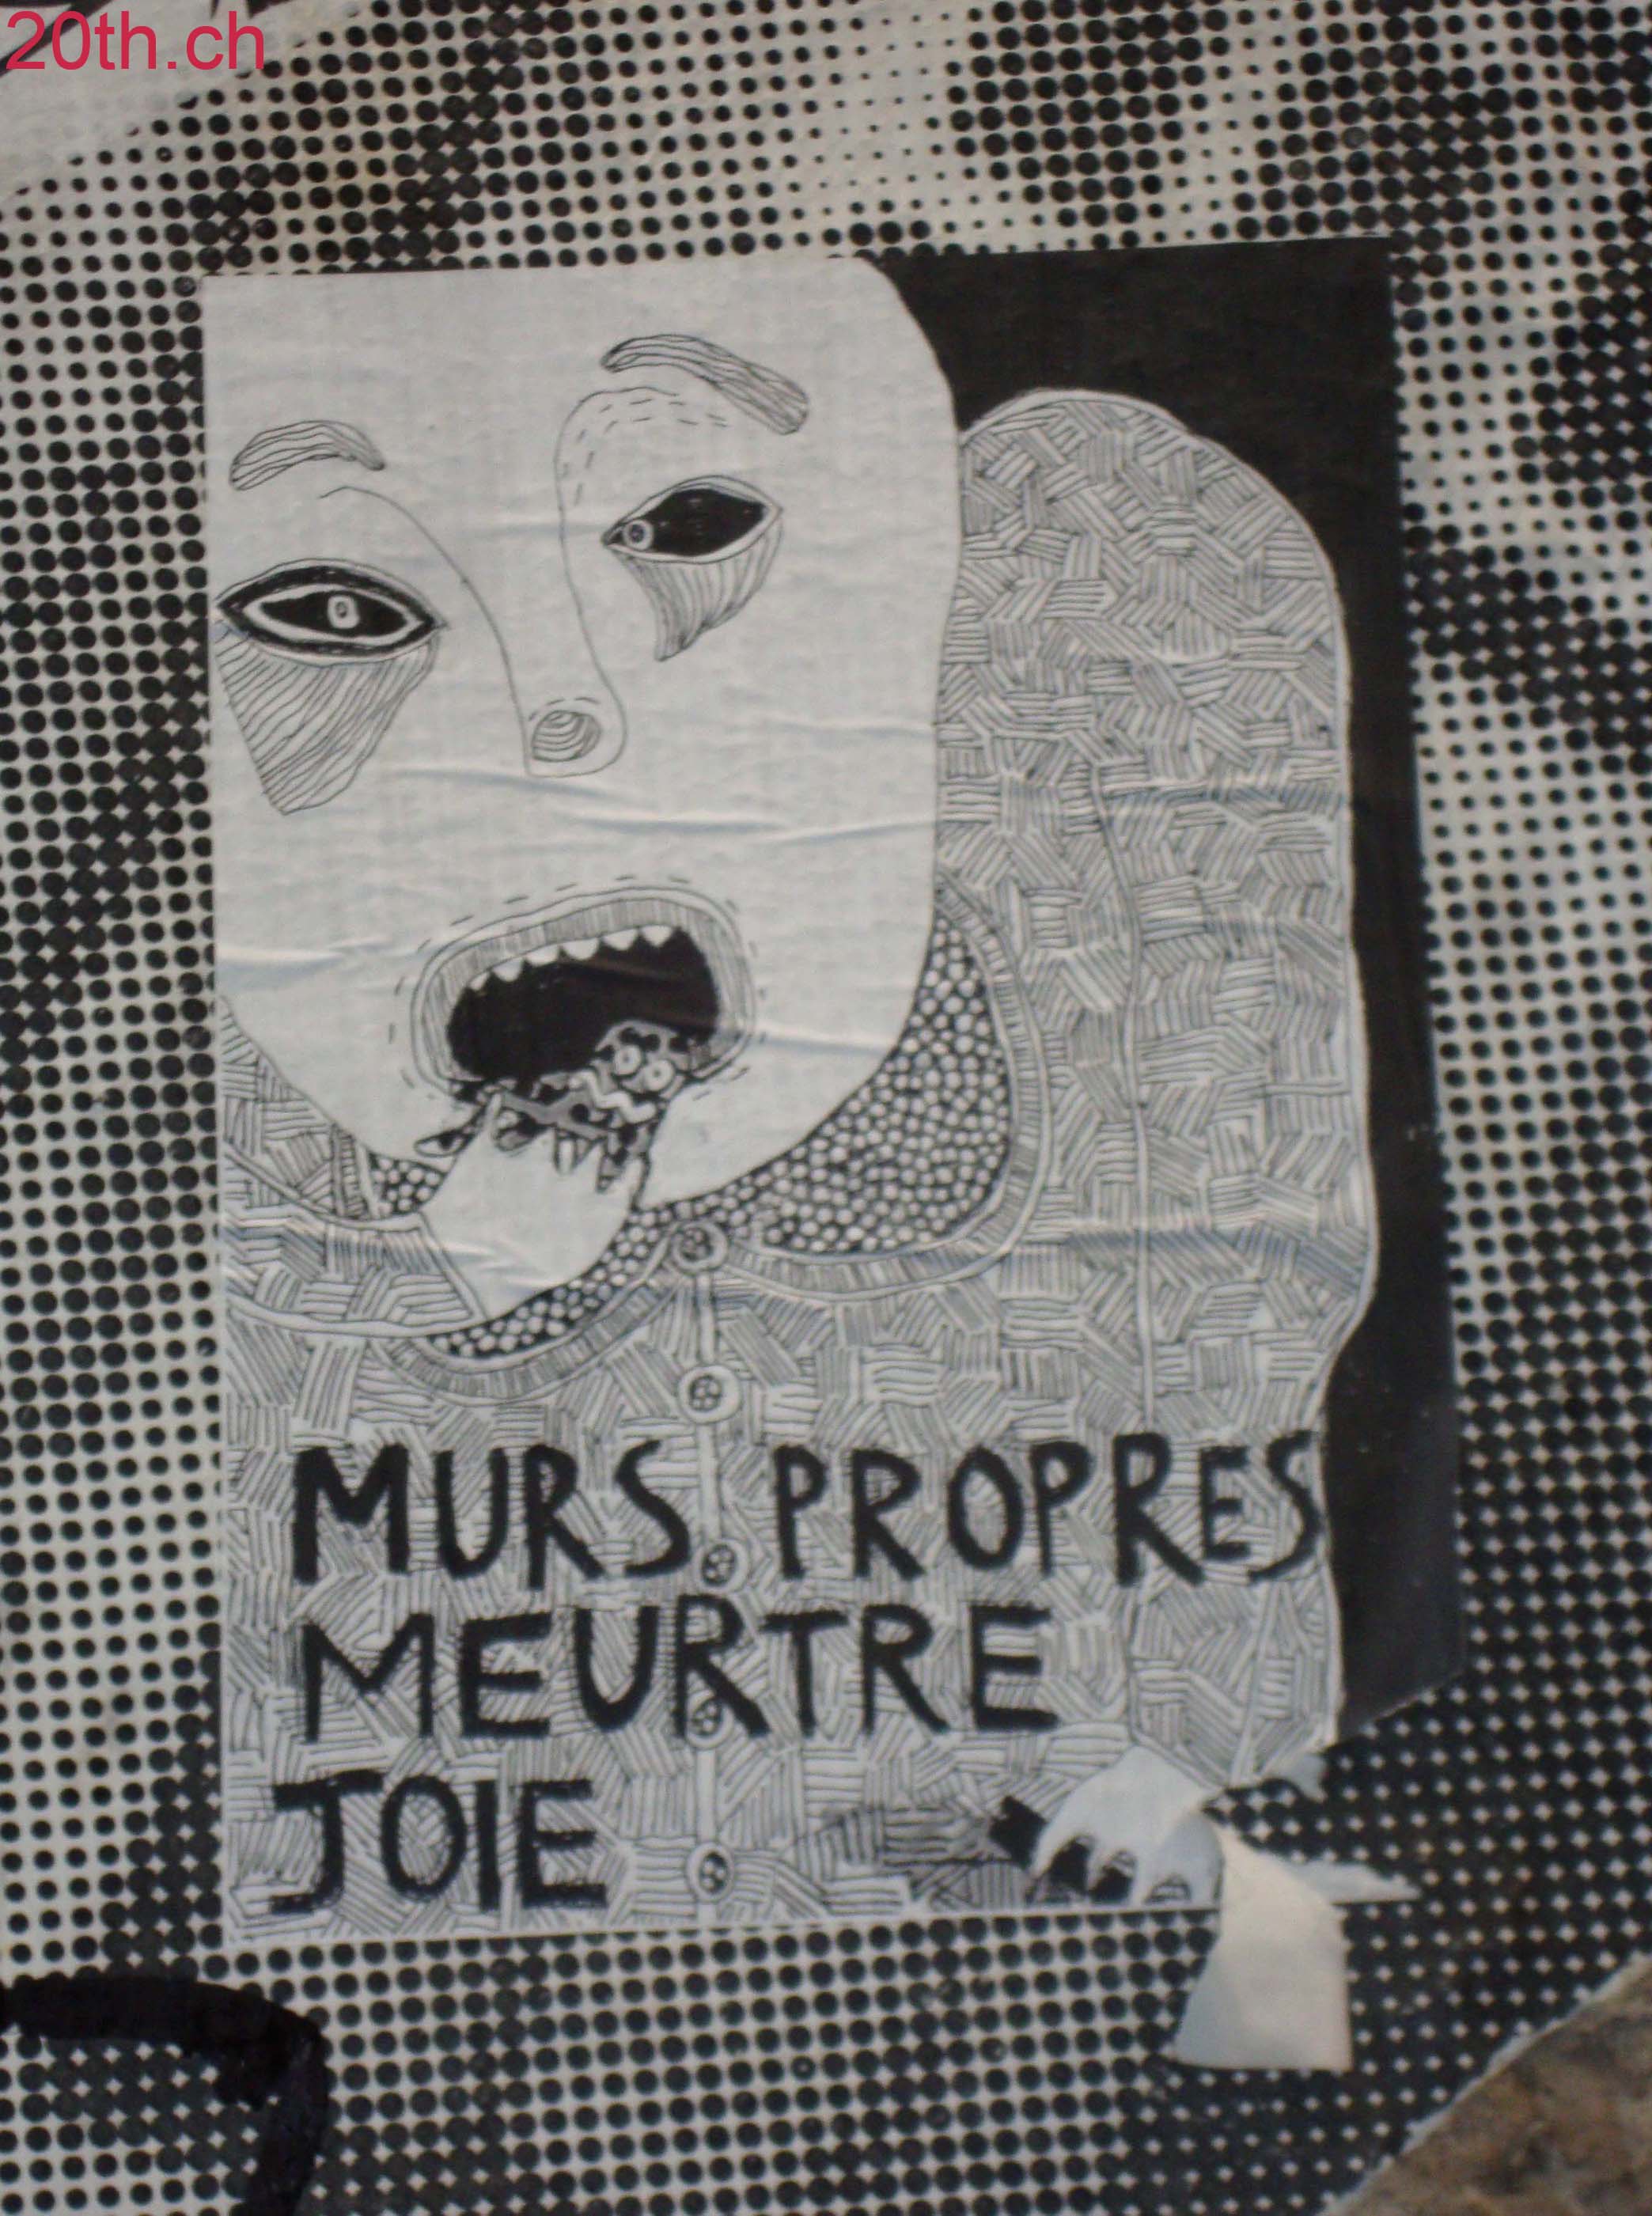 20th.ch
MURS PROPRES
MEURTRE
JOIE